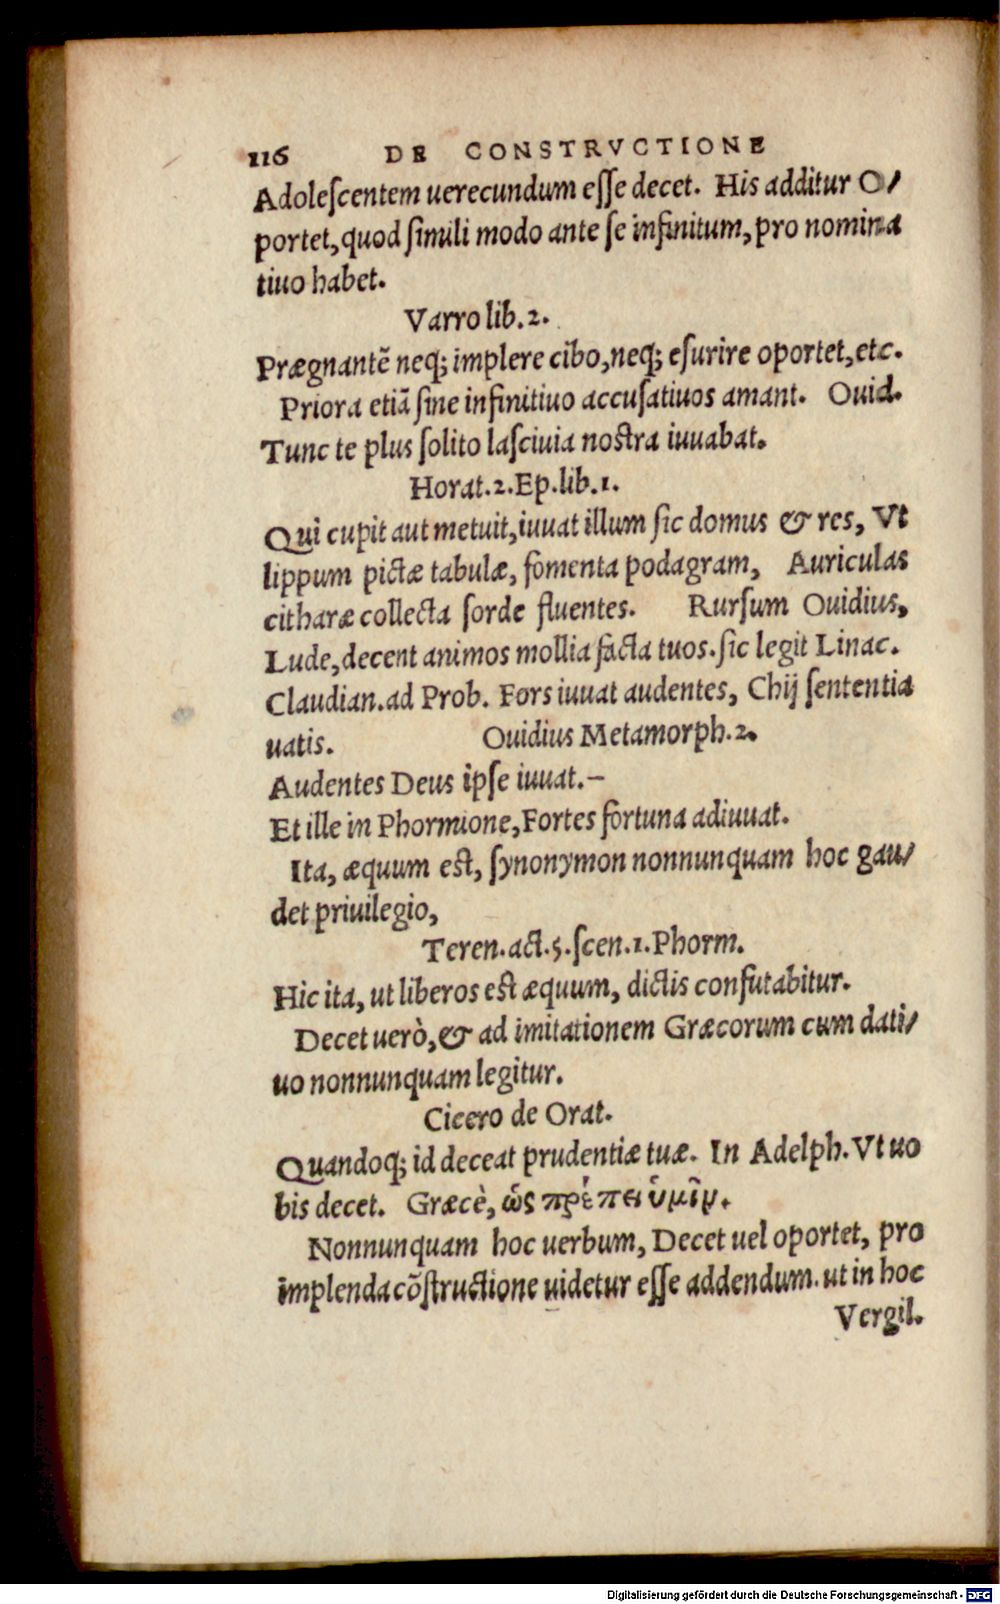 116 DE CONSTRVCTIONE
Adoleſcentem uerecundum eſſe decet. His additur O/
portet, quod ſimili modo ante ſe infinitum, pro nomina
tiuo habet.
Varro lib. 2.
Prægnantẽ neq; implere cibo, neq; eſurire oportet, etc.
Priora etiã ſine infinitiuo accuſatiuos amant. Ouid.
Tunc te plus ſolito laſciuia noſtra iuuabat.
Horat. 2. Ep. lib. 1.
Qui cupit aut metuit, iuuat illum ſic domus & res, Vt
lippum pictæ tabulæ, fomenta podagram, Auriculas
citharæ collecta ſorde fluentes. Rurſum Ouidius,
Lude, decent animos mollia facta tuos. ſic legit Linac.
Claudian. ad Prob. Fors iuuat audentes, Chij ſententia
uatis. Ouidius Metamorph. 2.
Audentes Deus ipſe iuuat.—
Et ille in Phormione, Fortes fortuna adiuuat.
Ita, æquum eſt, ſynonymon nonnunquam hoc gau/
det priuilegio,
Teren. act. 5. ſcen. 1. Phorm.
Hic ita, ut liberos eſt æquum, dictis confutabitur.
Decet uerò, & ad imitationem Græcorum cum dati/
uo nonnunquam legitur.
Cicero de Orat.
Quandoq; id deceat prudentiæ tuæ. In Adelph. Vt uo
bis decet. Græcè, ὡς πρέπει ὑμῖν.
Nonnunquam hoc uerbum, Decet uel oportet, pro
implenda cõſtructione uidetur eſſe addendum. ut in hoc
Vergil.
Digitalisierung gefördert durch die Deutsche Forschungsgemeinschaft - DFG